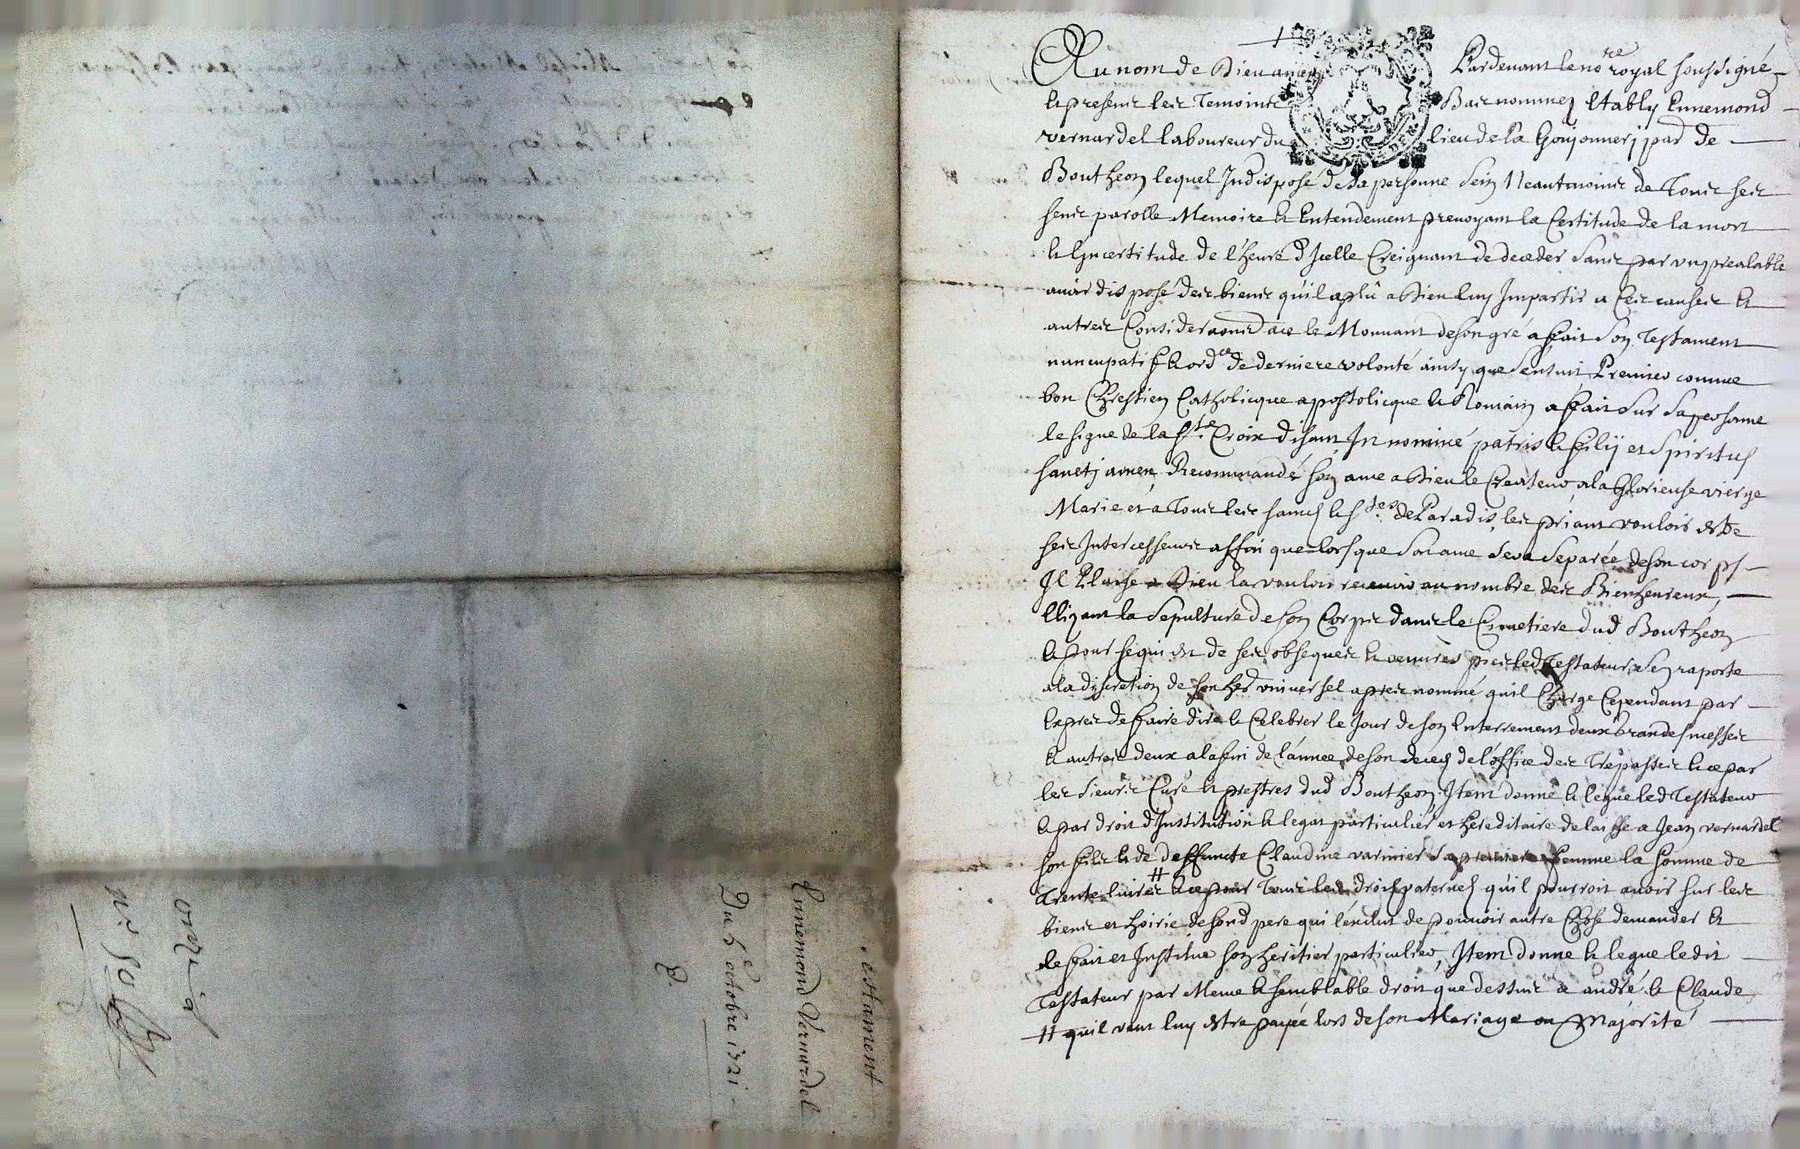 Testament
Ennemond Vernardel
Du 5e octobre 1721
Au nom de Dieu amen Pardevant le nore royal soussigné
et presens les Temoins Bas nommez Estably Ennemond
vernardel laboureur du lieu de la Goujonnery par de
Boutheon lequel Indisposé de sa personne sein Neantmoins de Tous ses
sens parolle Memoire et Entendement prevoyant la Certitude de la mort
et Lyncertitude de l'heure d'Jcelle Creignant de deceder sans par un prealable
avoir disposé des biens qu'il a plû a Dieu luy Impartir a Ces causes et
autres Considerations a ce le Mouvant de son gré a ffait son Testament
nuncupatif et ordce de derniere volonté ainsy que sensuit Premier comme
bon Chrestien Catholicque apostolicque et Romain a ffait sur sa personne
le signe de la Ste Croix disant In nomine patris et filij et Spiritus
sancti amen Recommandé son ame a Dieu le Createur, a la Glorieuse vierge
Marie et a Tous les saincts et stes de Paradis, les priant vouloir estre
ses Intercesseurs affin que lorsque son ame sera separée de son corps
Jl Plaise a Dieu la vouloir recevoir au nombre des Bienheureux,
Elizant la Sepulture de son Corps dans le Cimetiere dud Boutheon
et pour ce qui est de ses obseques et œuvres pies led Testateur sen raporte
a la discretion de son her universel apres nommé quil Charge Cependant par
Expres de ffaire dire et Celebrer le Jour de son Enterrement deux Grandes messes
et autres deux a la fin de l'année de son deces de l'office des Trepasses et ce par
les sieurs Curé et prestres dud Boutheon, Jtem donne et legue led Testateur
et par droit d'Institution et legat particulier et hereditaire delaisse a Jean vernardel
son fils et de deffuncte Claudine varinier sa premiere femme la somme de
trente livres # et ce pour Tous les droits paternels qu'il pourroit avoir sur les
biens et hoirie de sond pere qui l'exclut de pouvoir autre Chose demander et
le fait et Institue son heritier particulier, Jtem donne et legue ledit
Testateur par Meme et semblable droit que dessus a andré et Claude
# quil veut luy estre payée lors de son Mariage ou Majorité